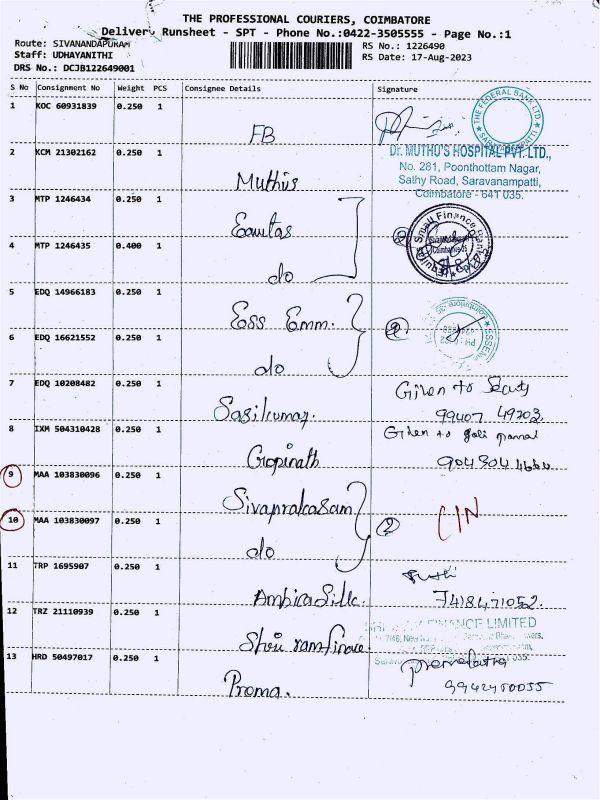 THE PROFESSIONAL COURIERS, COIMBATORE
Delivery Runsheet - SPT - Phone No.:0422-3505555 - Page No.:1
Route: SIVANANDAPURAM
Staff: UDHAYANITHI
DRS No.: DCJB122649001
RS No.: 1226490
RS Date: 17-Aug-2023
S No Consignment No Weight PCS Consignee Details Signature
1 KOC 60931839 0.250 1
FB
THE FEDERAL BANK LTD.
2 KCM 21302162 0.250 1
Muthus
Dr. MUTHU'S HOSPITAL PVT. LTD.,
No. 281, Poonthottam Nagar,
Sathy Road, Saravanampatti,
Coimbatore - 641 035.
3 MTP 1246434 0.250 1
Equitas
Small Finance Bank
4 MTP 1246435 0.400 1
do
5 EDQ 14966183 0.250 1
Ess Emm.
6 EDQ 16621552 0.250 1
do
7 EDQ 10208482 0.250 1
Sasikumar.
Given to
99407 49703
8 IXM 504310428 0.250 1
Gopinath
Given to
9 MAA 103830096 0.250 1
Sivaprakasam
10 MAA 103830097 0.250 1
do
2
CIN
11 TRP 1695907 0.250 1
Ambica Silk.
7418471052.
12 TRZ 21110939 0.250 1
Shri ram finance.
FINANCE LIMITED
13 HRD 50497017 0.250 1
Prema.
9942450055